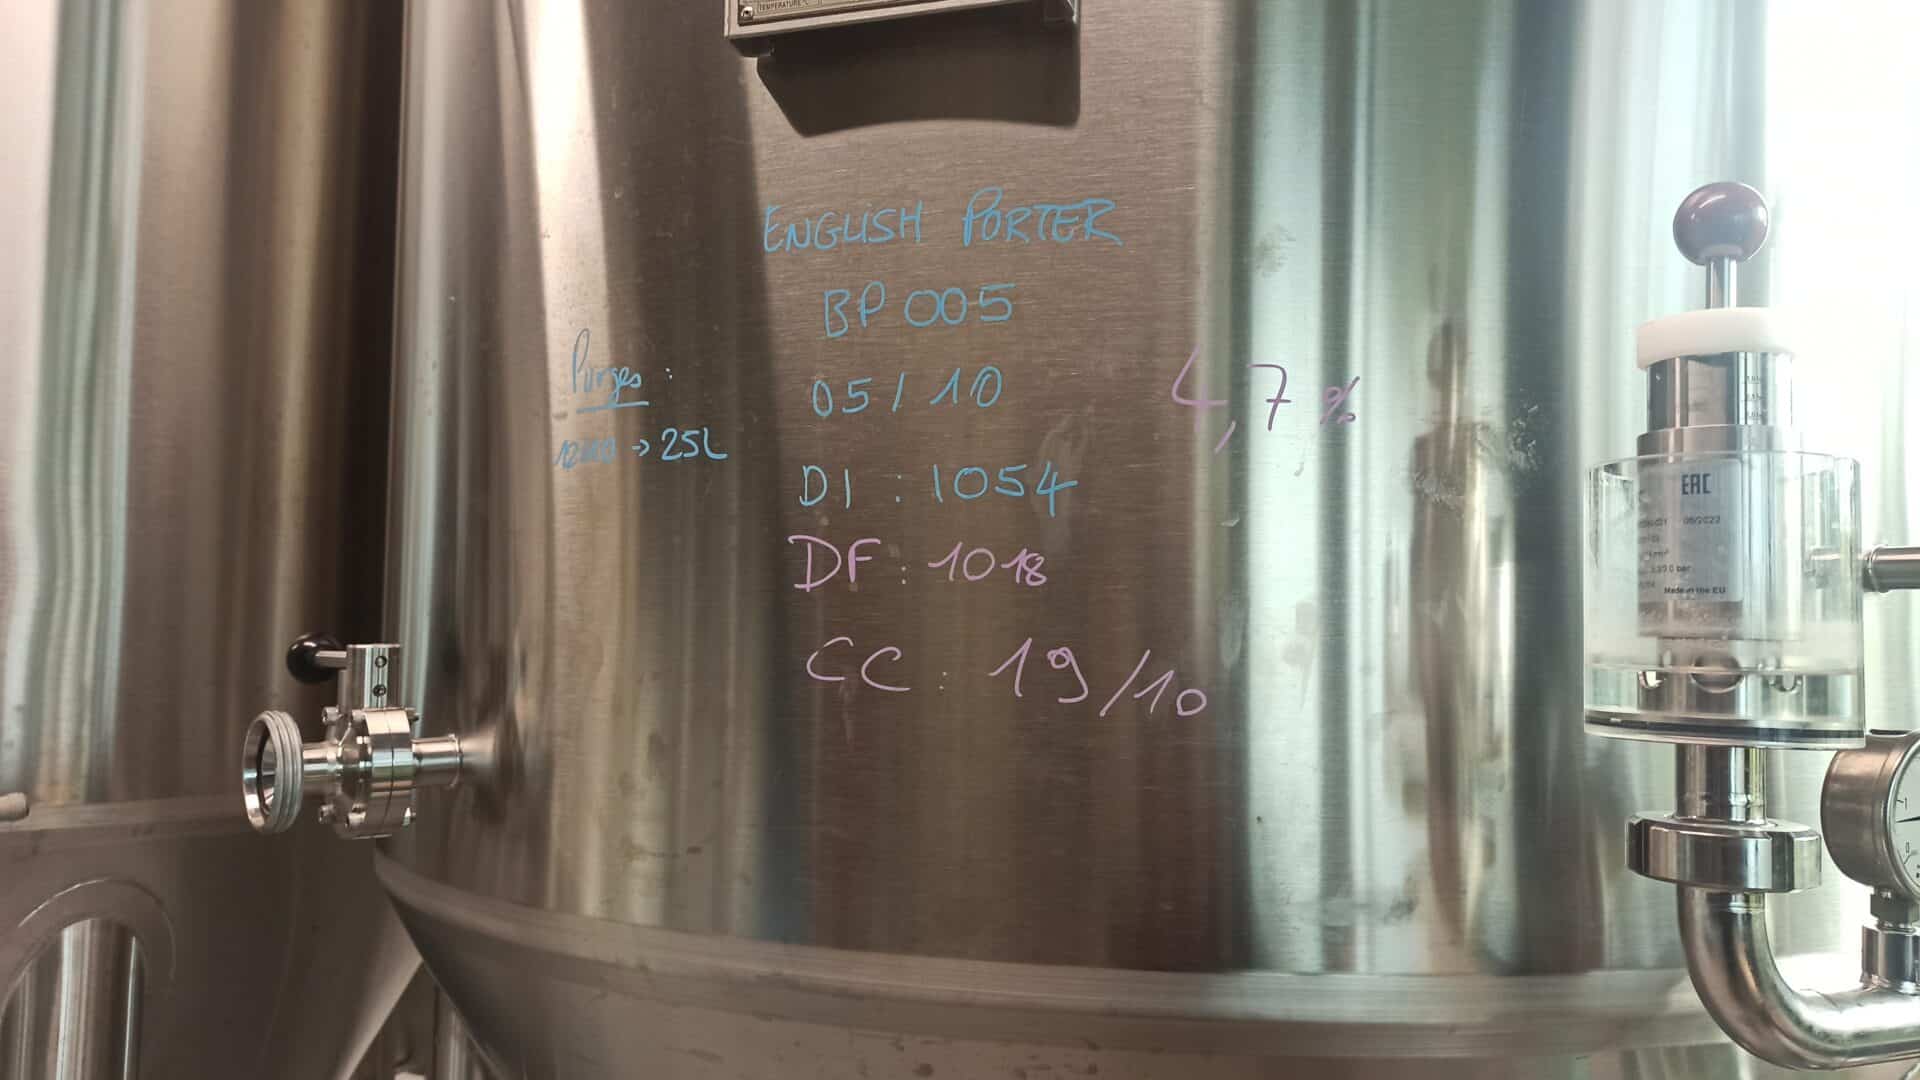 TEMPERATURE °C
ENGLISH PORTER
BP 005
Purges :
→ 25L
05/10
4,7 %
DI : 1054
DF : 1018
CC : 19/10
EAC
06/2022
bar
Made in the EU
1
0